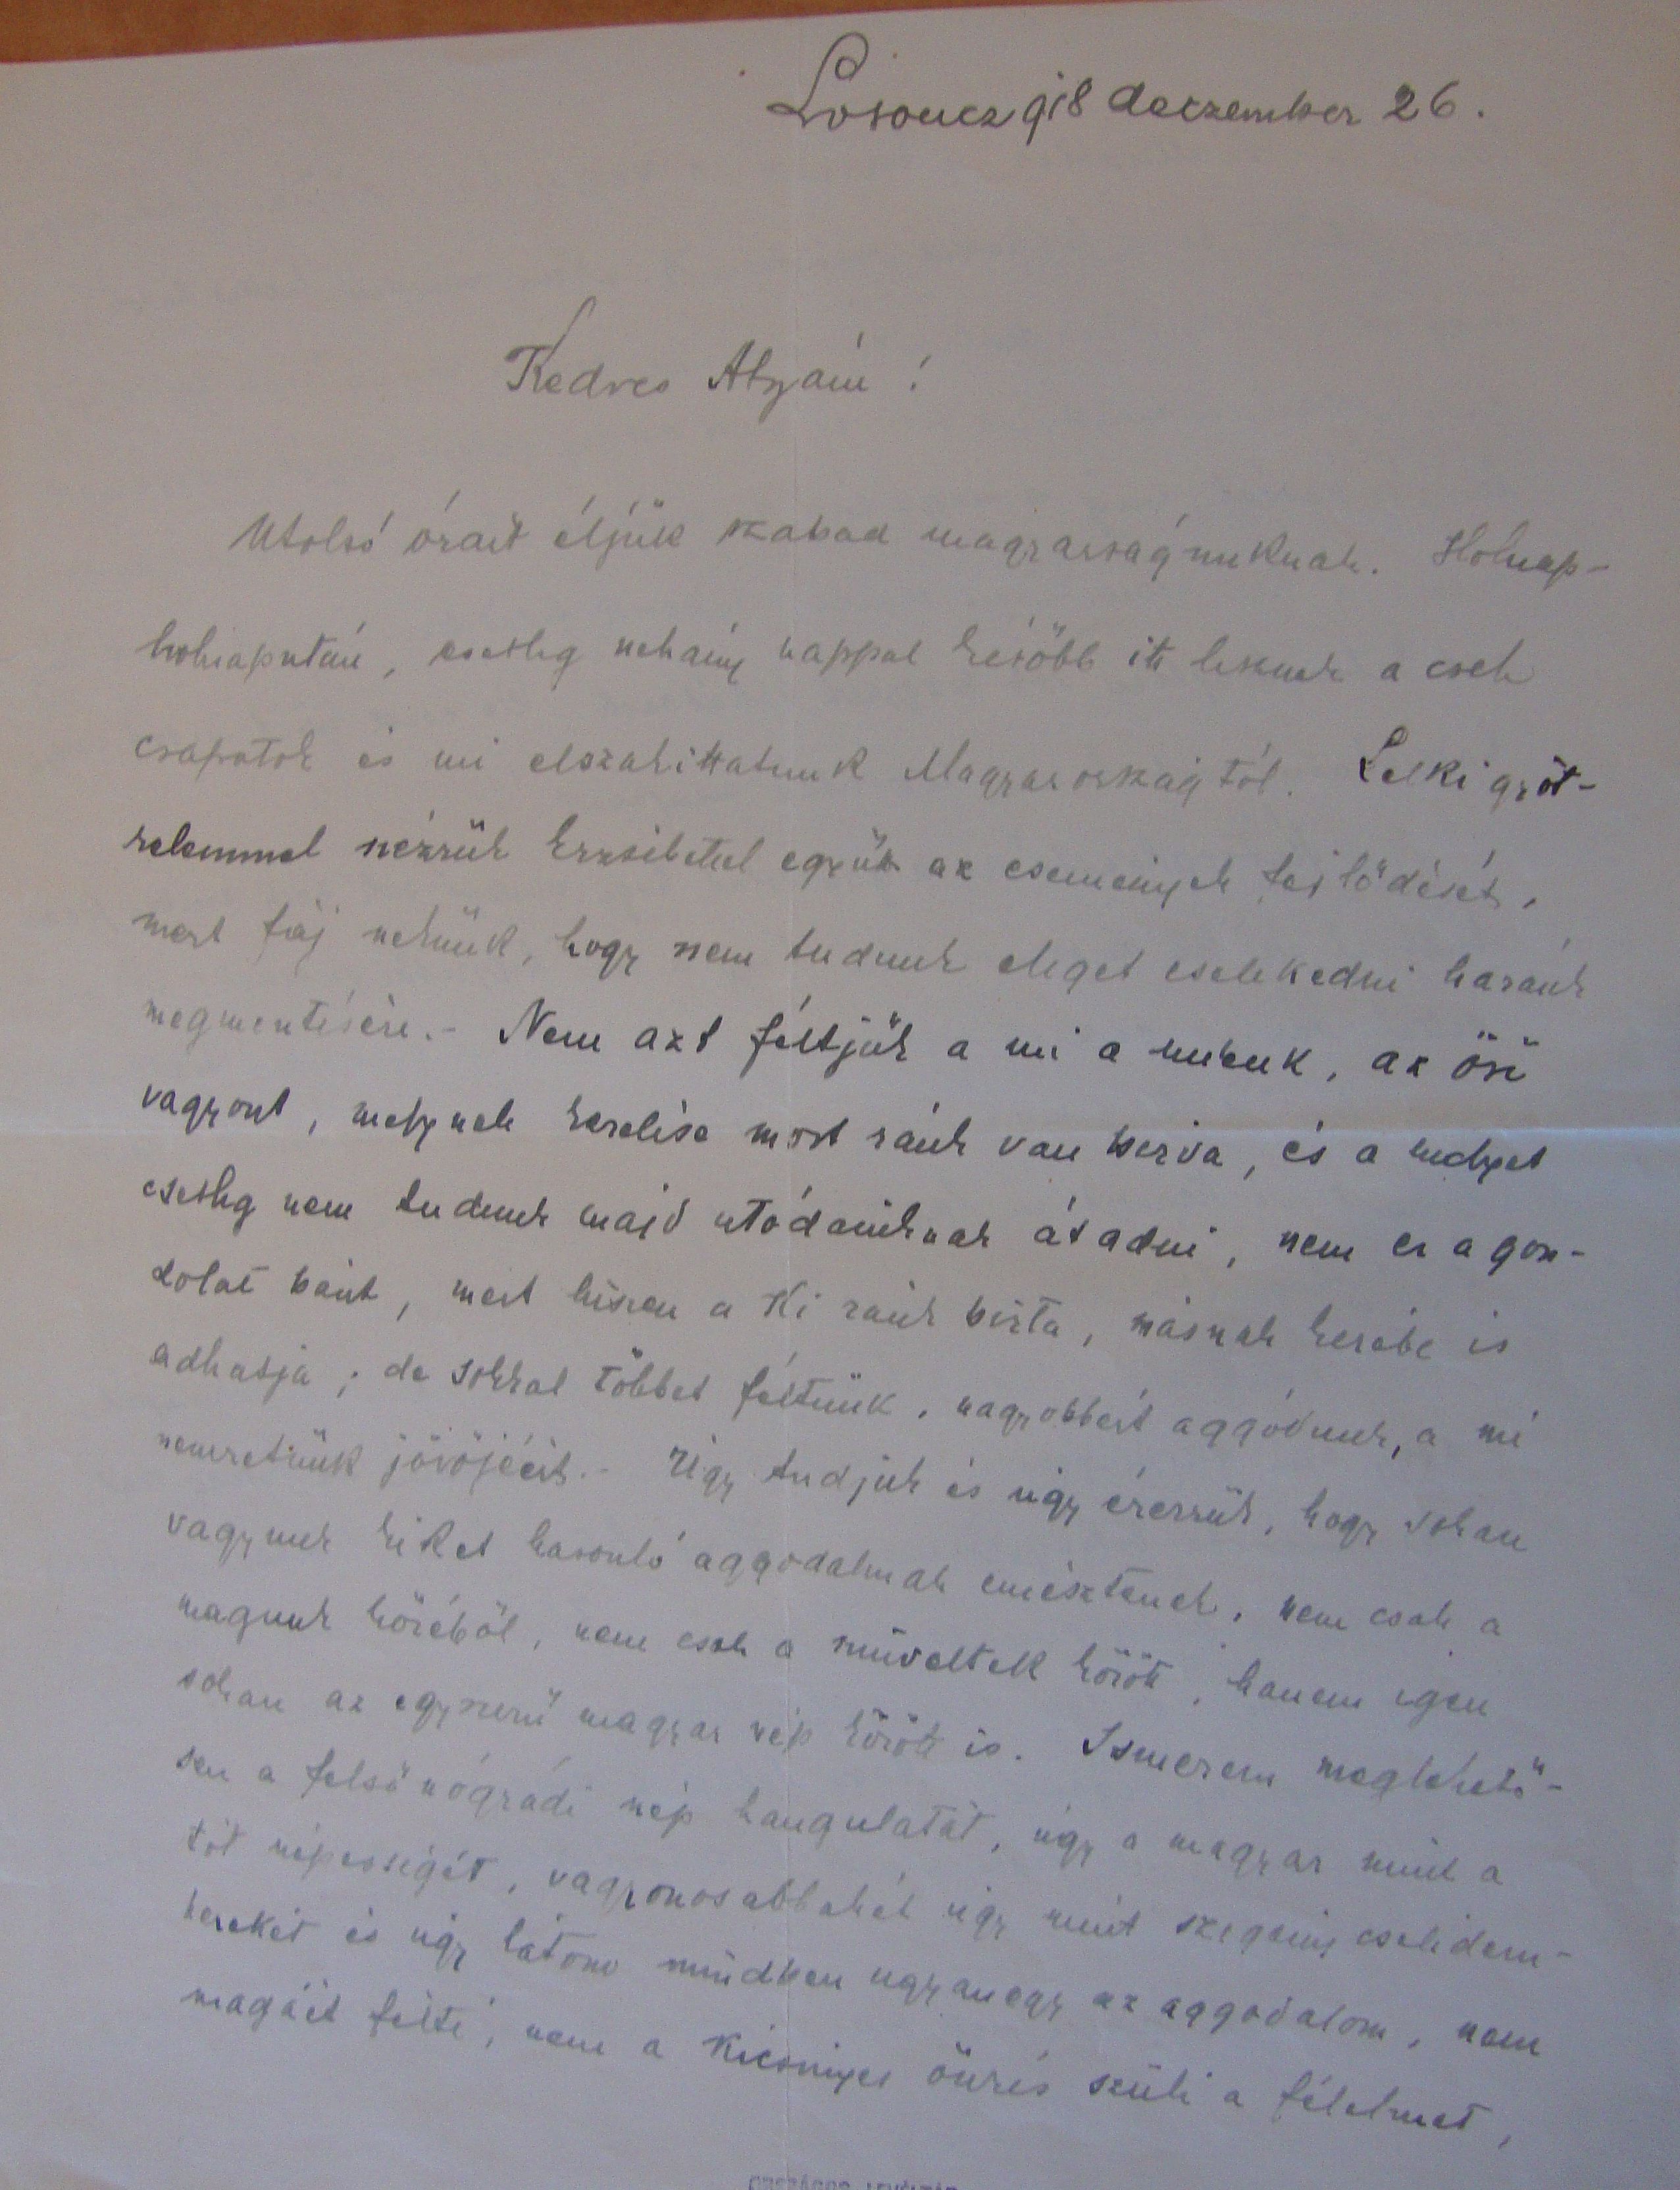 Losoncz 918 deczember 26.
Kedves Atyám!
Utolsó óráit éljük szabad magyarságunknak. Holnap-
holnapután, esetleg néhány nappal később itt lesznek a cseh
csapatok és mi elszakittatunk Magyarországtól. Lelki gyöt-
relemmel nézzük Erzsébettel együtt az események fejlődését,
mert fáj nekünk, hogy nem tudunk eleget cselekedni hazánk
megmentésére. - Nem azt féltjük a mi a mienk, az ősi
vagyont, melynek kezelése most ránk van bizva, és a melyet
esetleg nem tudunk majd utódainknak átadni, nem ez a gon-
dolat bánt, mert hiszen a Ki ránk bizta, másnak kezébe is
adhatja; de sokkal többet féltünk, nagyobbért aggódunk, a mi
nemzetünk jövőjéért. - Úgy tudjuk és úgy érezzük, hogy sokan
vagyunk kiket hasonló aggodalmak emésztenek, nem csak a
magunk köréből, nem csak a műveltek között, hanem igen
sokan az egyszerü magyar nép között is. Ismerem meglehető-
sen a felső nógrádi nép hangulatát, úgy a magyar mint a
tót népességét, vagyonosabbakét úgy mint szegény cselédem-
berekét és úgy látom mindben ugyanegy az aggodalom, nem
magáét félti, nem a kicsinyes önzés szüli a félelmet,
ORSZÁGOS LEVÉLTÁR